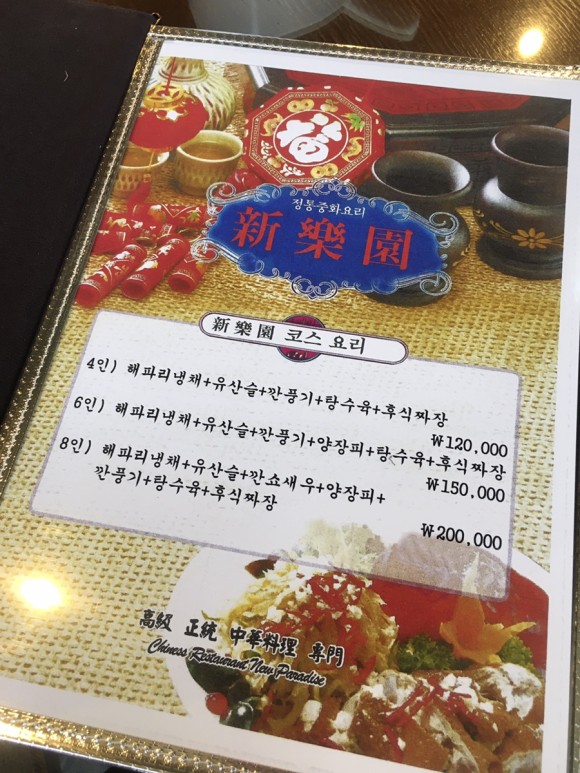 福
정통중화요리
新樂園
新樂園 코스 요리
4인) 해파리냉채+유산슬+깐풍기+탕수육+후식짜장
₩120,000
6인) 해파리냉채+유산슬+깐풍기+양장피+탕수육+후식짜장
₩150,000
8인) 해파리냉채+유산슬+깐쇼새우+양장피+
깐풍기+탕수육+후식짜장
₩200,000
高級 正統 中華料理 專門
Chiness Restaurant New Paradise